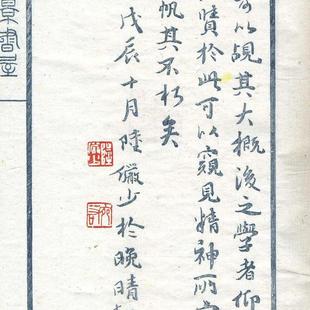 可以觇其大概后之學者仰
賾於此可以窺見精神所
帆其不朽矣
戊辰十月陸儼少於晚晴